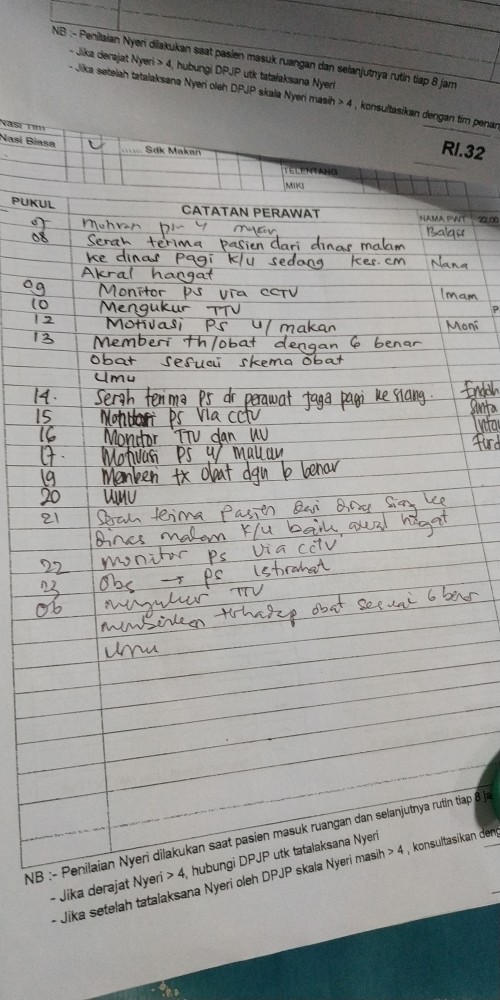 NB :- Penilaian Nyeri dilakukan saat pasien masuk ruangan dan selanjutnya rutin tiap 8 jam
- Jika derajat Nyeri > 4, hubungi DPJP utk tatalaksana Nyeri
- Jika setelah tatalaksana Nyeri oleh DPJP skala Nyeri masih > 4 , konsultasikan dengan tim
RI.32
Nasi Tim
Nasi Biasa ..... Sdk Makan
TELENTANG
MIKI
PUKUL CATATAN PERAWAT NAMA PWT 22.00
07
08 Serah terima pasien dari dinas malam
ke dinas pagi k/u sedang kes. cm Nana
Akral hangat
09 Monitor ps via CCTV Imam
10 Mengukur TTV
12 Motivasi PS u/ makan Moni
13 Memberi th/obat dengan 6 benar
obat sesuai skema obat
Umu
14. Serah terima ps dr perawat jaga pagi ke siang. Endah
15 Monitori ps via cctv
16 Monitor TTV dan KU
17. Motivasi PS u/ makan
19 Memberi tx obat dgn 6 benar
20 umu
21 Serah terima pasien dari dinas siang ke
dinas malam k/u baik, akral hangat
22 monitor ps via cctv
23 Obs → ps istirahat
06 mengukur TTV
memberikan obat sesuai 6 benar
umu
NB :- Penilaian Nyeri dilakukan saat pasien masuk ruangan dan selanjutnya rutin tiap 8
- Jika derajat Nyeri > 4, hubungi DPJP utk tatalaksana Nyeri
- Jika setelah tatalaksana Nyeri oleh DPJP skala Nyeri masih > 4 , konsultasikan